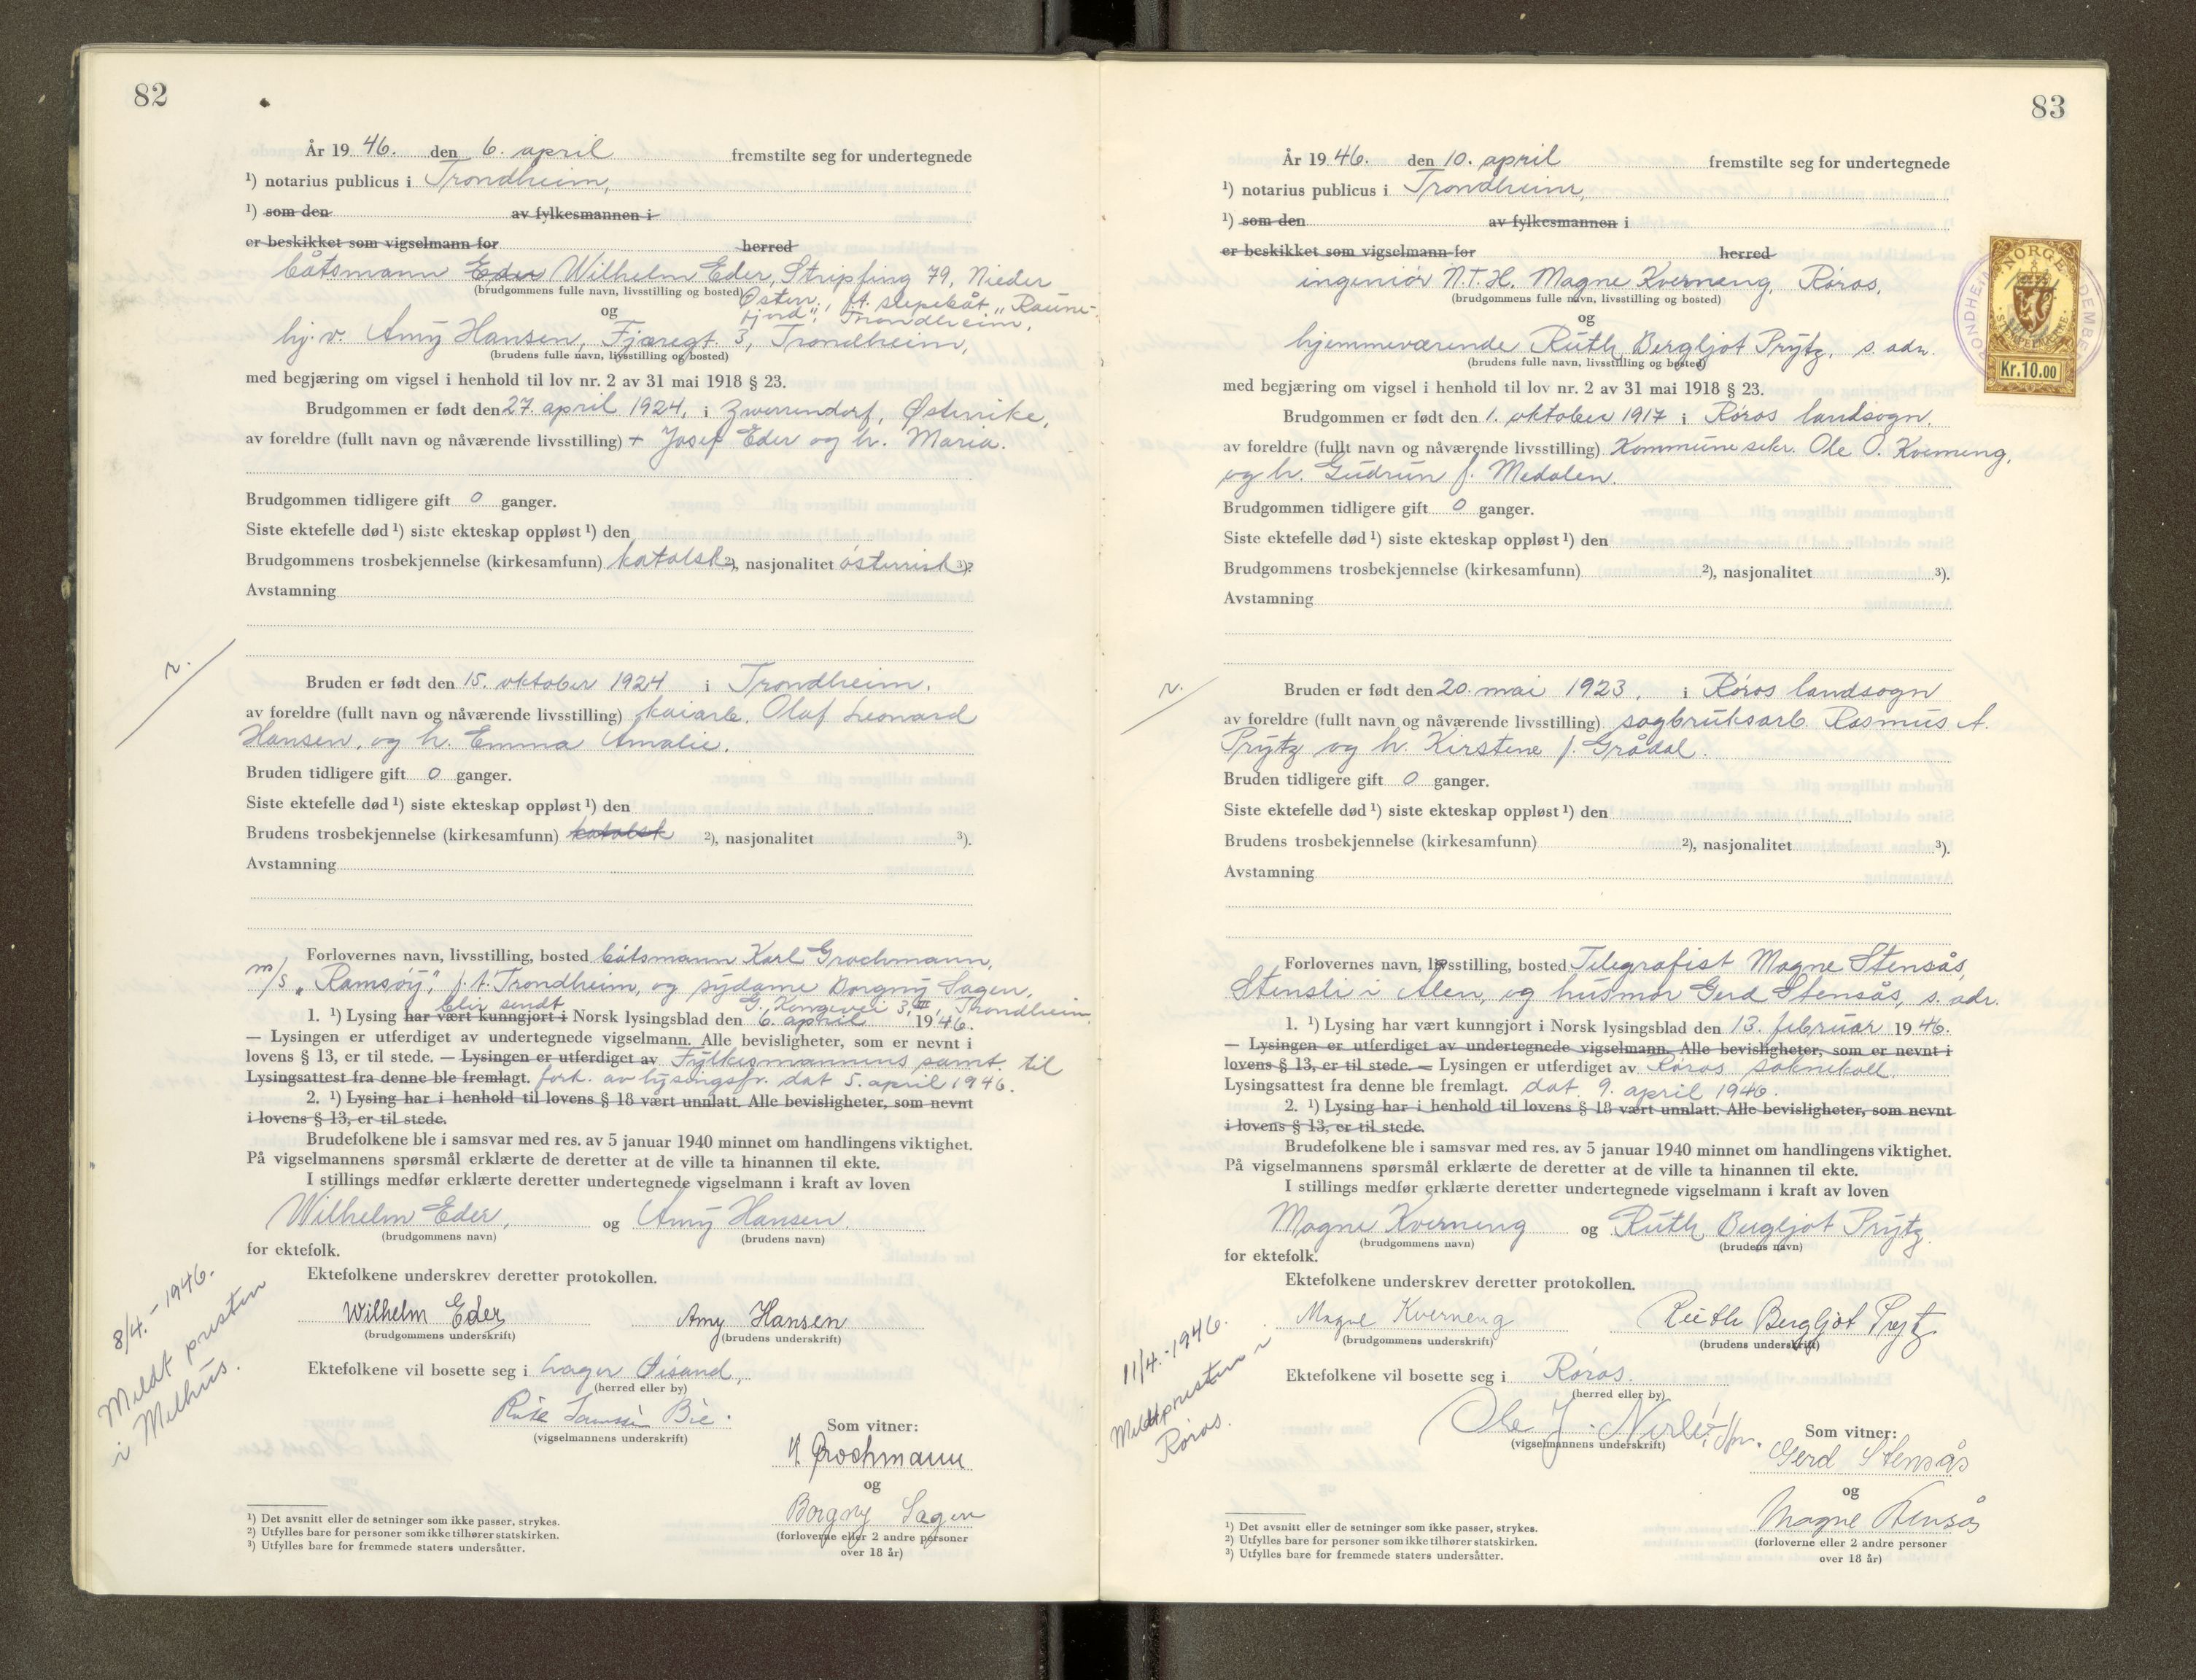 82
År 1946. den 6. april fremstilte seg for undertegnede
¹) notarius publicus i Trondheim,
¹) som den av fylkesmannen i
er beskikket som vigselmann for herred
båtsmann Eder Wilhelm Eder, Stripfing 79, Nieder
(brudgommens fulle navn, livsstilling og bosted)
Østerr., f.t. slepebåt „Raune-
og
fjord", Trondheim,
hj.v. Amy Hansen, Fjæregt. 3, Trondheim,
(brudens fulle navn, livsstilling og bosted)
med begjæring om vigsel i henhold til lov nr. 2 av 31 mai 1918 § 23.
Brudgommen er født den 27. april 1924, i Zwerrendorf, Østerrike,
av foreldre (fullt navn og nåværende livsstilling) + Josef Eder og h. Maria.
Brudgommen tidligere gift 0 ganger.
Siste ektefelle død ¹) siste ekteskap oppløst ¹) den
Brudgommens trosbekjennelse (kirkesamfunn) katolsk ²), nasjonalitet østerrisk ³).
Avstamning
r.
Bruden er født den 15. oktober 1924 i Trondheim.
av foreldre (fullt navn og nåværende livsstilling) kaiarb. Olaf Leonard
Hansen, og h. Emma Amalie.
Bruden tidligere gift 0 ganger.
Siste ektefelle død ¹) siste ekteskap oppløst ¹) den
Brudens trosbekjennelse (kirkesamfunn) katolsk ²), nasjonalitet ³).
Avstamning
Forlovernes navn, livsstilling, bosted båtsmann Karl Grochmann,
m/s „Ramsøy", f.t. Trondheim, og sydame Borgny Sagen,
blir sendt G. Kongevei 3, III, Trondheim.
1. ¹) Lysing har vært kunngjort i Norsk lysingsblad den 6. april 1946.
— Lysingen er utferdiget av undertegnede vigselmann. Alle bevisligheter, som er nevnt i
lovens § 13, er til stede. — Lysingen er utferdiget av Fylkesmannens samt. til
Lysingsattest fra denne ble fremlagt. fork. av lysingsfr. dat 5. april 1946.
2. ¹) Lysing har i henhold til lovens § 18 vært unnlatt. Alle bevisligheter, som nevnt
i lovens § 13, er til stede.
Brudefolkene ble i samsvar med res. av 5 januar 1940 minnet om handlingens viktighet.
På vigselmannens spørsmål erklærte de deretter at de ville ta hinannen til ekte.
I stillings medfør erklærte deretter undertegnede vigselmann i kraft av loven
Wilhelm Eder, og Amy Hansen.
(brudgommens navn) (brudens navn)
for ektefolk.
Ektefolkene underskrev deretter protokollen.
Wilhelm Eder Amy Hansen
(brudgommens underskrift) (brudens underskrift)
8/4.-1946.
Meldt presten
i Melhus.
Ektefolkene vil bosette seg i Lager Øisand,
(herred eller by)
(vigselmannens underskrift)
Som vitner:
K Grochmann
og
Borgny Sagen
(forloverne eller 2 andre personer
over 18 år)
¹) Det avsnitt eller de setninger som ikke passer, strykes.
²) Utfylles bare for personer som ikke tilhører statskirken.
³) Utfylles bare for fremmede staters undersåtter.
83
År 1946. den 10. april fremstilte seg for undertegnede
¹) notarius publicus i Trondheim,
¹) som den av fylkesmannen i
er beskikket som vigselmann for herred
ingeniør N.T.H. Magne Kverneng, Røros,
(brudgommens fulle navn, livsstilling og bosted)
og
hjemmeværende Ruth Bergljot Prytz, s. adr.
(brudens fulle navn, livsstilling og bosted)
NORGE
Kr.10.00
med begjæring om vigsel i henhold til lov nr. 2 av 31 mai 1918 § 23.
Brudgommen er født den 1. oktober 1917 i Røros landsogn.
av foreldre (fullt navn og nåværende livsstilling) Kommunesekr. Ole O. Kverneng,
og h. Gudrun f. Medalen.
Brudgommen tidligere gift 0 ganger.
Siste ektefelle død ¹) siste ekteskap oppløst ¹) den
Brudgommens trosbekjennelse (kirkesamfunn) ²), nasjonalitet ³).
Avstamning
r.
Bruden er født den 20. mai 1923, i Røros landsogn
av foreldre (fullt navn og nåværende livsstilling) sagbruksarb. Rasmus A.
Prytz og h. Kirstene f. Grådal.
Bruden tidligere gift 0 ganger.
Siste ektefelle død ¹) siste ekteskap oppløst ¹) den
Brudens trosbekjennelse (kirkesamfunn) ²), nasjonalitet ³).
Avstamning
Forlovernes navn, livsstilling, bosted Telegrafist Magne Stensås,
Stensli i Ålen, og husmor Gerd Stensås, s. adr.
1. ¹) Lysing har vært kunngjort i Norsk lysingsblad den 13. februar 1946.
— Lysingen er utferdiget av undertegnede vigselmann. Alle bevisligheter, som er nevnt i
lovens § 13, er til stede. — Lysingen er utferdiget av Røros soknekall.
Lysingsattest fra denne ble fremlagt. dat. 9. april 1946.
2. ¹) Lysing har i henhold til lovens § 18 vært unnlatt. Alle bevisligheter, som nevnt
i lovens § 13, er til stede.
Brudefolkene ble i samsvar med res. av 5 januar 1940 minnet om handlingens viktighet.
På vigselmannens spørsmål erklærte de deretter at de ville ta hinannen til ekte.
I stillings medfør erklærte deretter undertegnede vigselmann i kraft av loven
Magne Kverneng og Ruth Bergljot Prytz.
(brudgommens navn) (brudens navn)
for ektefolk.
Ektefolkene underskrev deretter protokollen.
Magne Kverneng Ruth Bergljot Prytz
(brudgommens underskrift) (brudens underskrift)
11/4.-1946.
Meldt presten i
Røros.
Ektefolkene vil bosette seg i Røros.
(herred eller by)
Ole J.
(vigselmannens underskrift)
Som vitner:
Gerd Stensås
og
Magne Stensås
(forloverne eller 2 andre personer
over 18 år)
¹) Det avsnitt eller de setninger som ikke passer, strykes.
²) Utfylles bare for personer som ikke tilhører statskirken.
³) Utfylles bare for fremmede staters undersåtter.